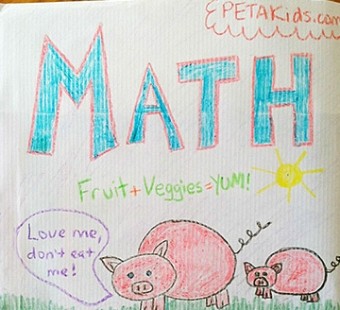 PETAKids.com
MATH
Fruit + Veggies = YUM!
Love me,
don't eat
me!